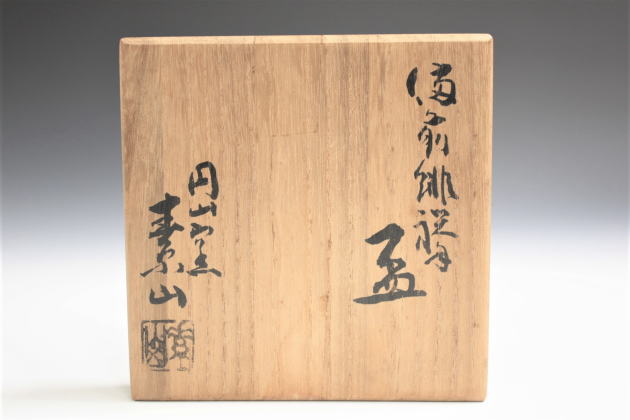 備前緋襷
盃
円山窯
素山